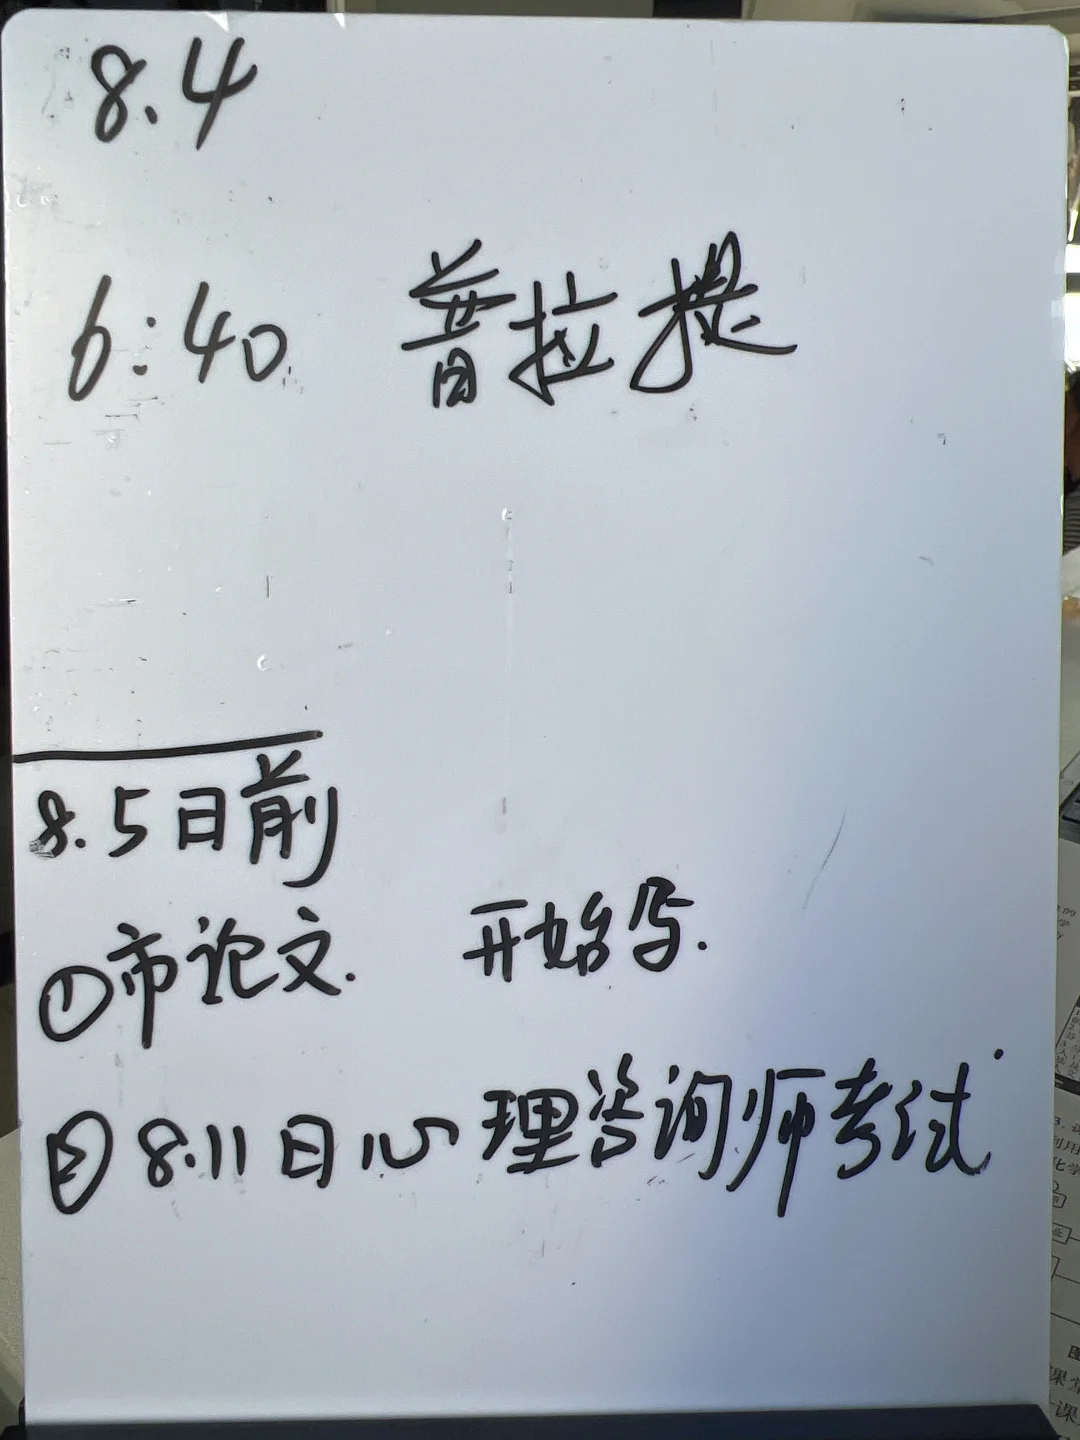 8.4
6:40 普拉提
8.5日前
①市论文. 开始写.
②8.11日心理咨询师考试